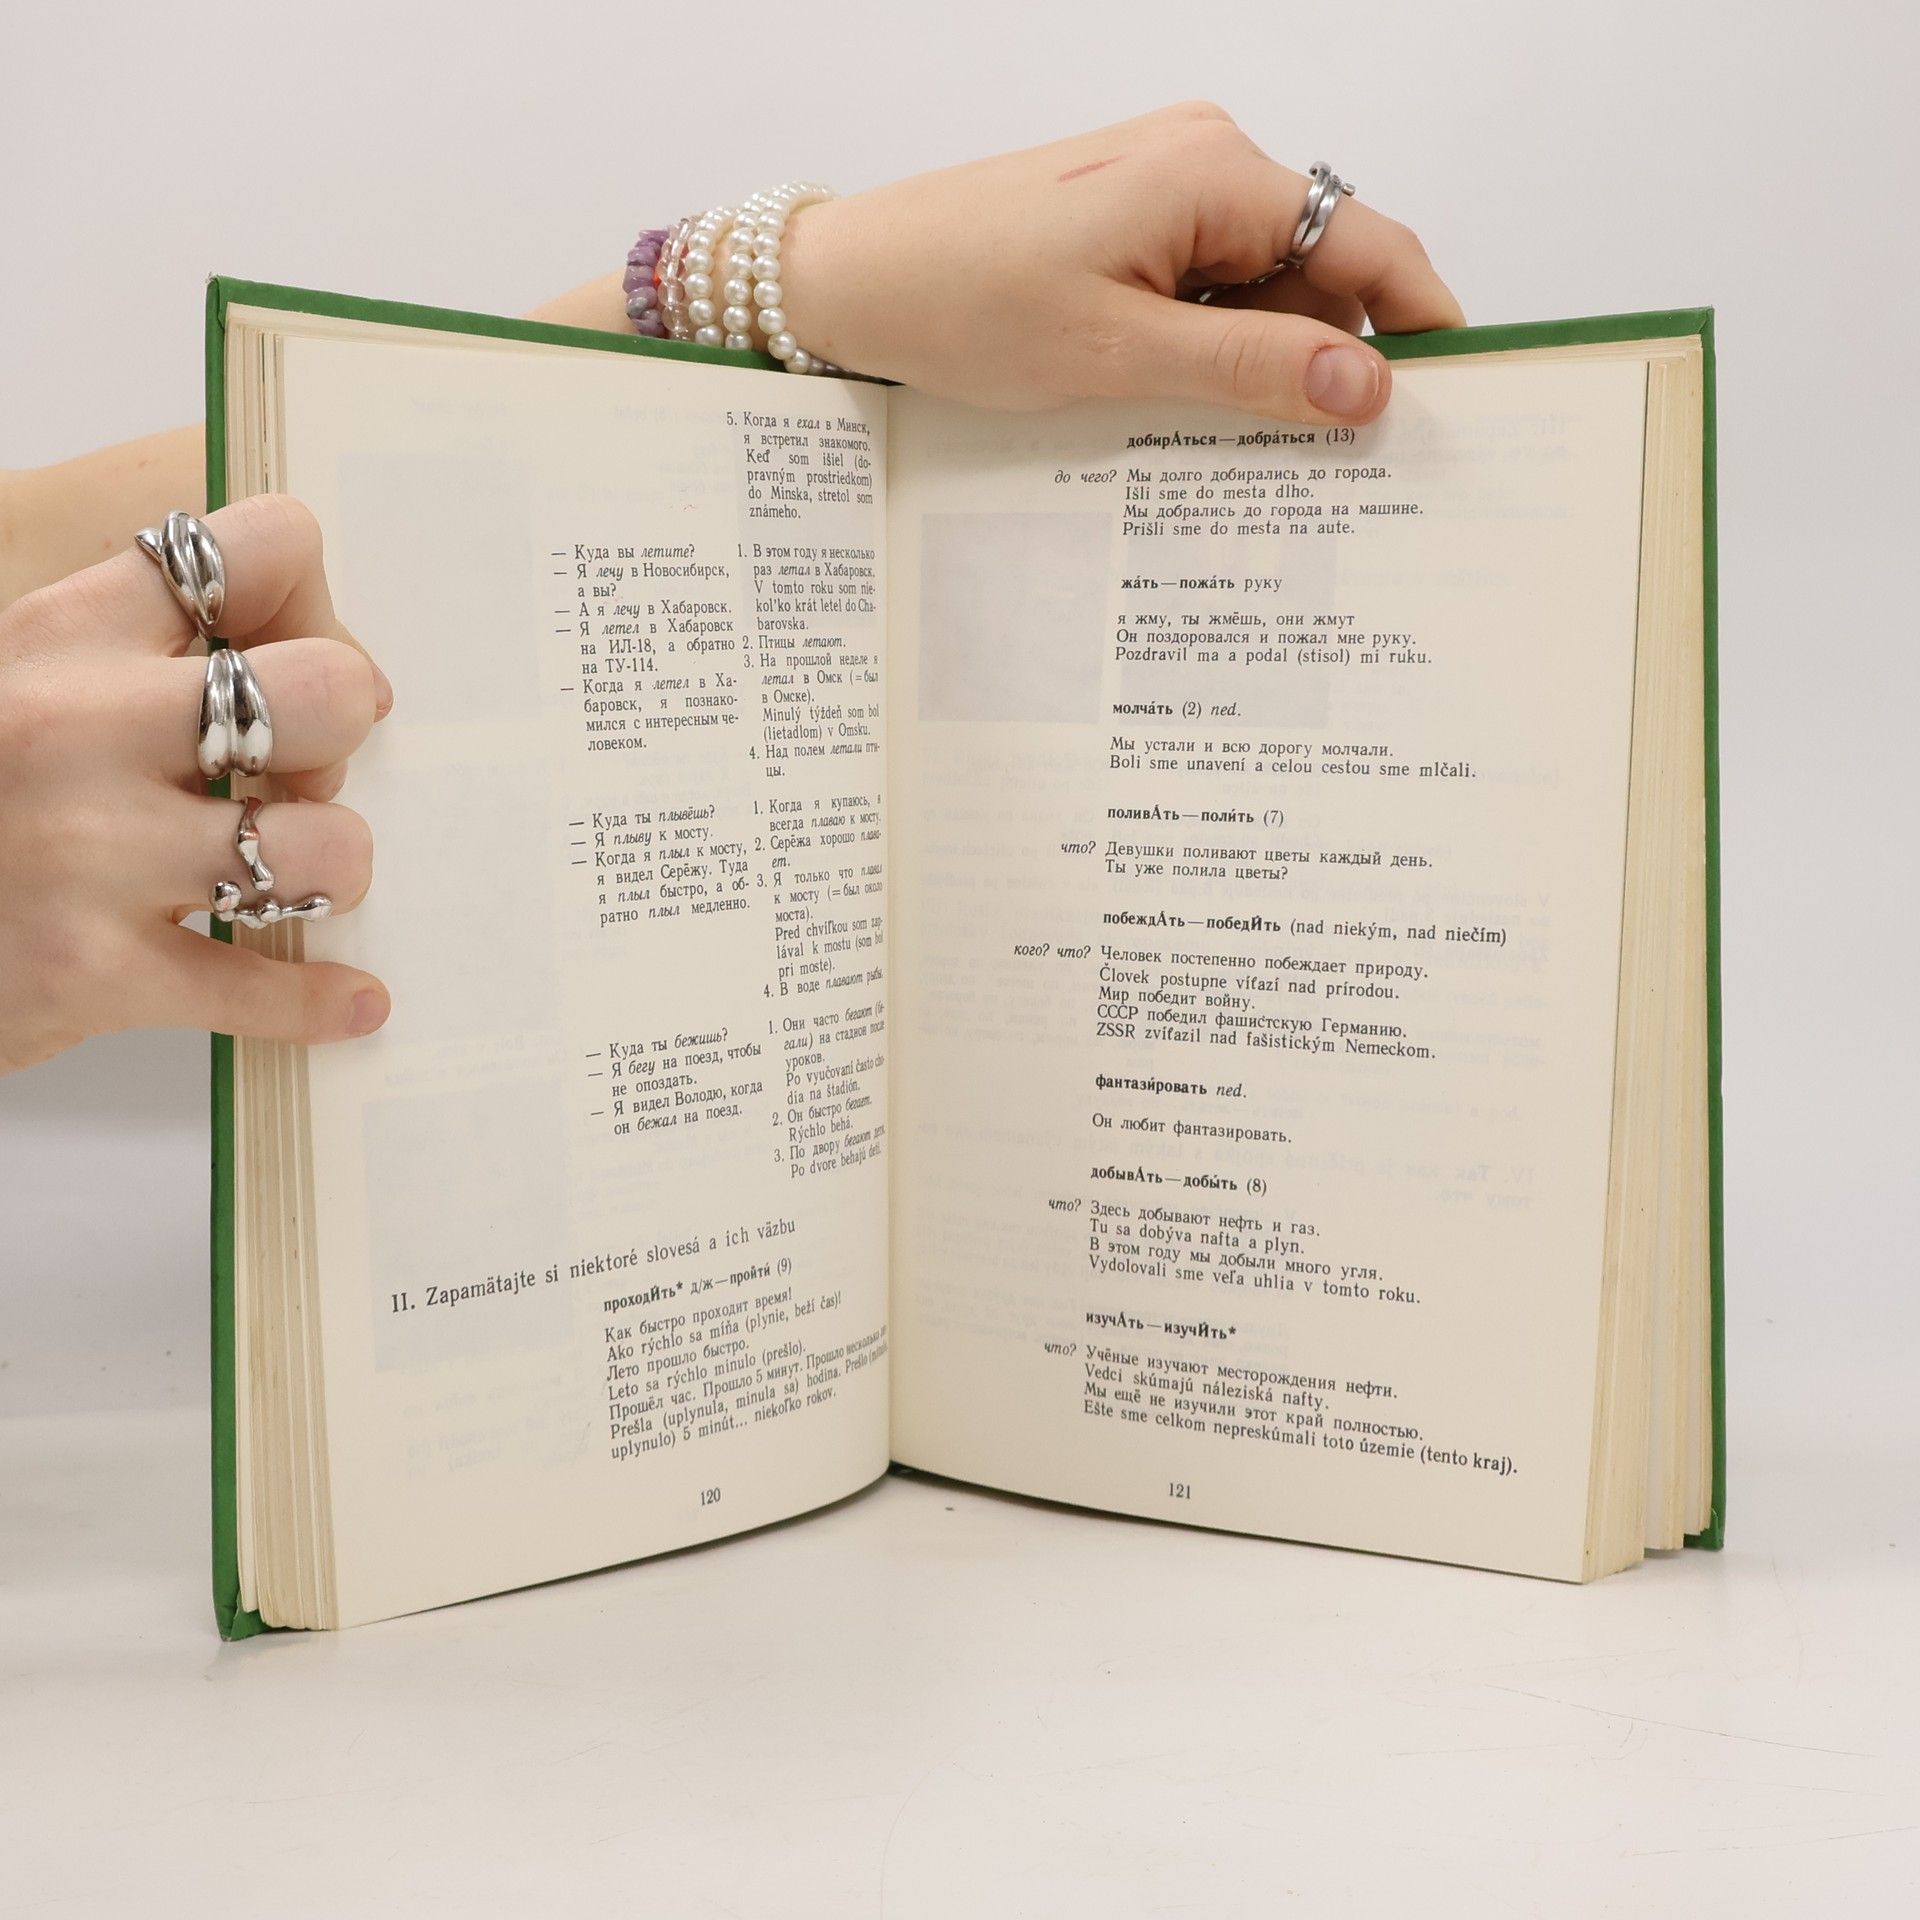 5. Когда я ехал в Минск,
я встретил знакомого.
Keď som išiel (do-
pravným prostriedkom)
do Minska, stretol som
známeho.
— Куда вы летите?
— Я лечу в Новосибирск,
а вы?
— А я лечу в Хабаровск.
— Я летел в Хабаровск
на ИЛ-18, а обратно
на ТУ-114.
— Когда я летел в Ха-
баровск, я познако-
мился с интересным че-
ловеком.
1. В этом году я несколько
раз летал в Хабаровск.
V tomto roku som nie-
koľko krát letel do Cha-
barovska.
2. Птицы летают.
3. На прошлой неделе я
летал в Омск (=был
в Омске).
Minulý týždeň som bol
(lietadlom) v Omsku.
4. Над полем летали пти-
цы.
— Куда ты плывёшь?
— Я плыву к мосту.
— Когда я плыл к мосту,
я видел Серёжу. Туда
я плыл быстро, а об-
ратно плыл медленно.
1. Когда я купаюсь, я
всегда плаваю к мосту.
2. Серёжа хорошо плава-
ет.
3. Я только что плавал
к мосту (=был около
моста).
Pred chvíľkou som zap-
lával k mostu (som bol
pri moste).
4. В воде плавают рыбы.
— Куда ты бежишь?
— Я бегу на поезд, чтобы
не опоздать.
— Я видел Володю, когда
он бежал на поезд.
1. Они часто бегают (бе-
гали) на стадион после
уроков.
Po vyučovaní často cho-
dia na štadión.
2. Он быстро бегает.
Rýchlo behá.
3. По двору бегают дети.
Po dvore behajú deti.
II. Zapamätajte si niektoré slovesá a ich väzbu
проходИ́ть* д/ж—пройти́ (9)
Как быстро проходит время!
Ako rýchlo sa míňa (plynie, beží čas)!
Лето прошло быстро.
Leto sa rýchlo minulo (prešlo).
Прошёл час. Прошло 5 минут. Прошло несколько лет.
Prešla (uplynula, minula sa) hodina. Prešlo (minulo,
uplynulo) 5 minút... niekoľko rokov.
120
добирА́ться—добра́ться (13)
до чего? Мы долго добирались до города.
Išli sme do mesta dlho.
Мы добрались до города на машине.
Prišli sme do mesta na aute.
жа́ть—пожа́ть руку
я жму, ты жмёшь, они жмут
Он поздоровался и пожал мне руку.
Pozdravil ma a podal (stisol) mi ruku.
молча́ть (2) ned.
Мы устали и всю дорогу молчали.
Boli sme unavení a celou cestou sme mlčali.
поливА́ть—поли́ть (7)
что? Девушки поливают цветы каждый день.
Ты уже полила цветы?
побеждА́ть—победИ́ть (nad niekým, nad niečím)
кого? что? Человек постепенно побеждает природу.
Človek postupne víťazí nad prírodou.
Мир победит войну.
СССР победил фашистскую Германию.
ZSSR zvíťazil nad fašistickým Nemeckom.
фантази́ровать ned.
Он любит фантазировать.
добывА́ть—добы́ть (8)
что? Здесь добывают нефть и газ.
Tu sa dobýva nafta a plyn.
В этом году мы добыли много угля.
Vydolovali sme veľa uhlia v tomto roku.
изучА́ть—изучИ́ть*
что? Учёные изучают месторождения нефти.
Vedci skúmajú náleziská nafty.
Мы ещё не изучили этот край полностью.
Ešte sme celkom nepreskúmali toto územie (tento kraj).
121